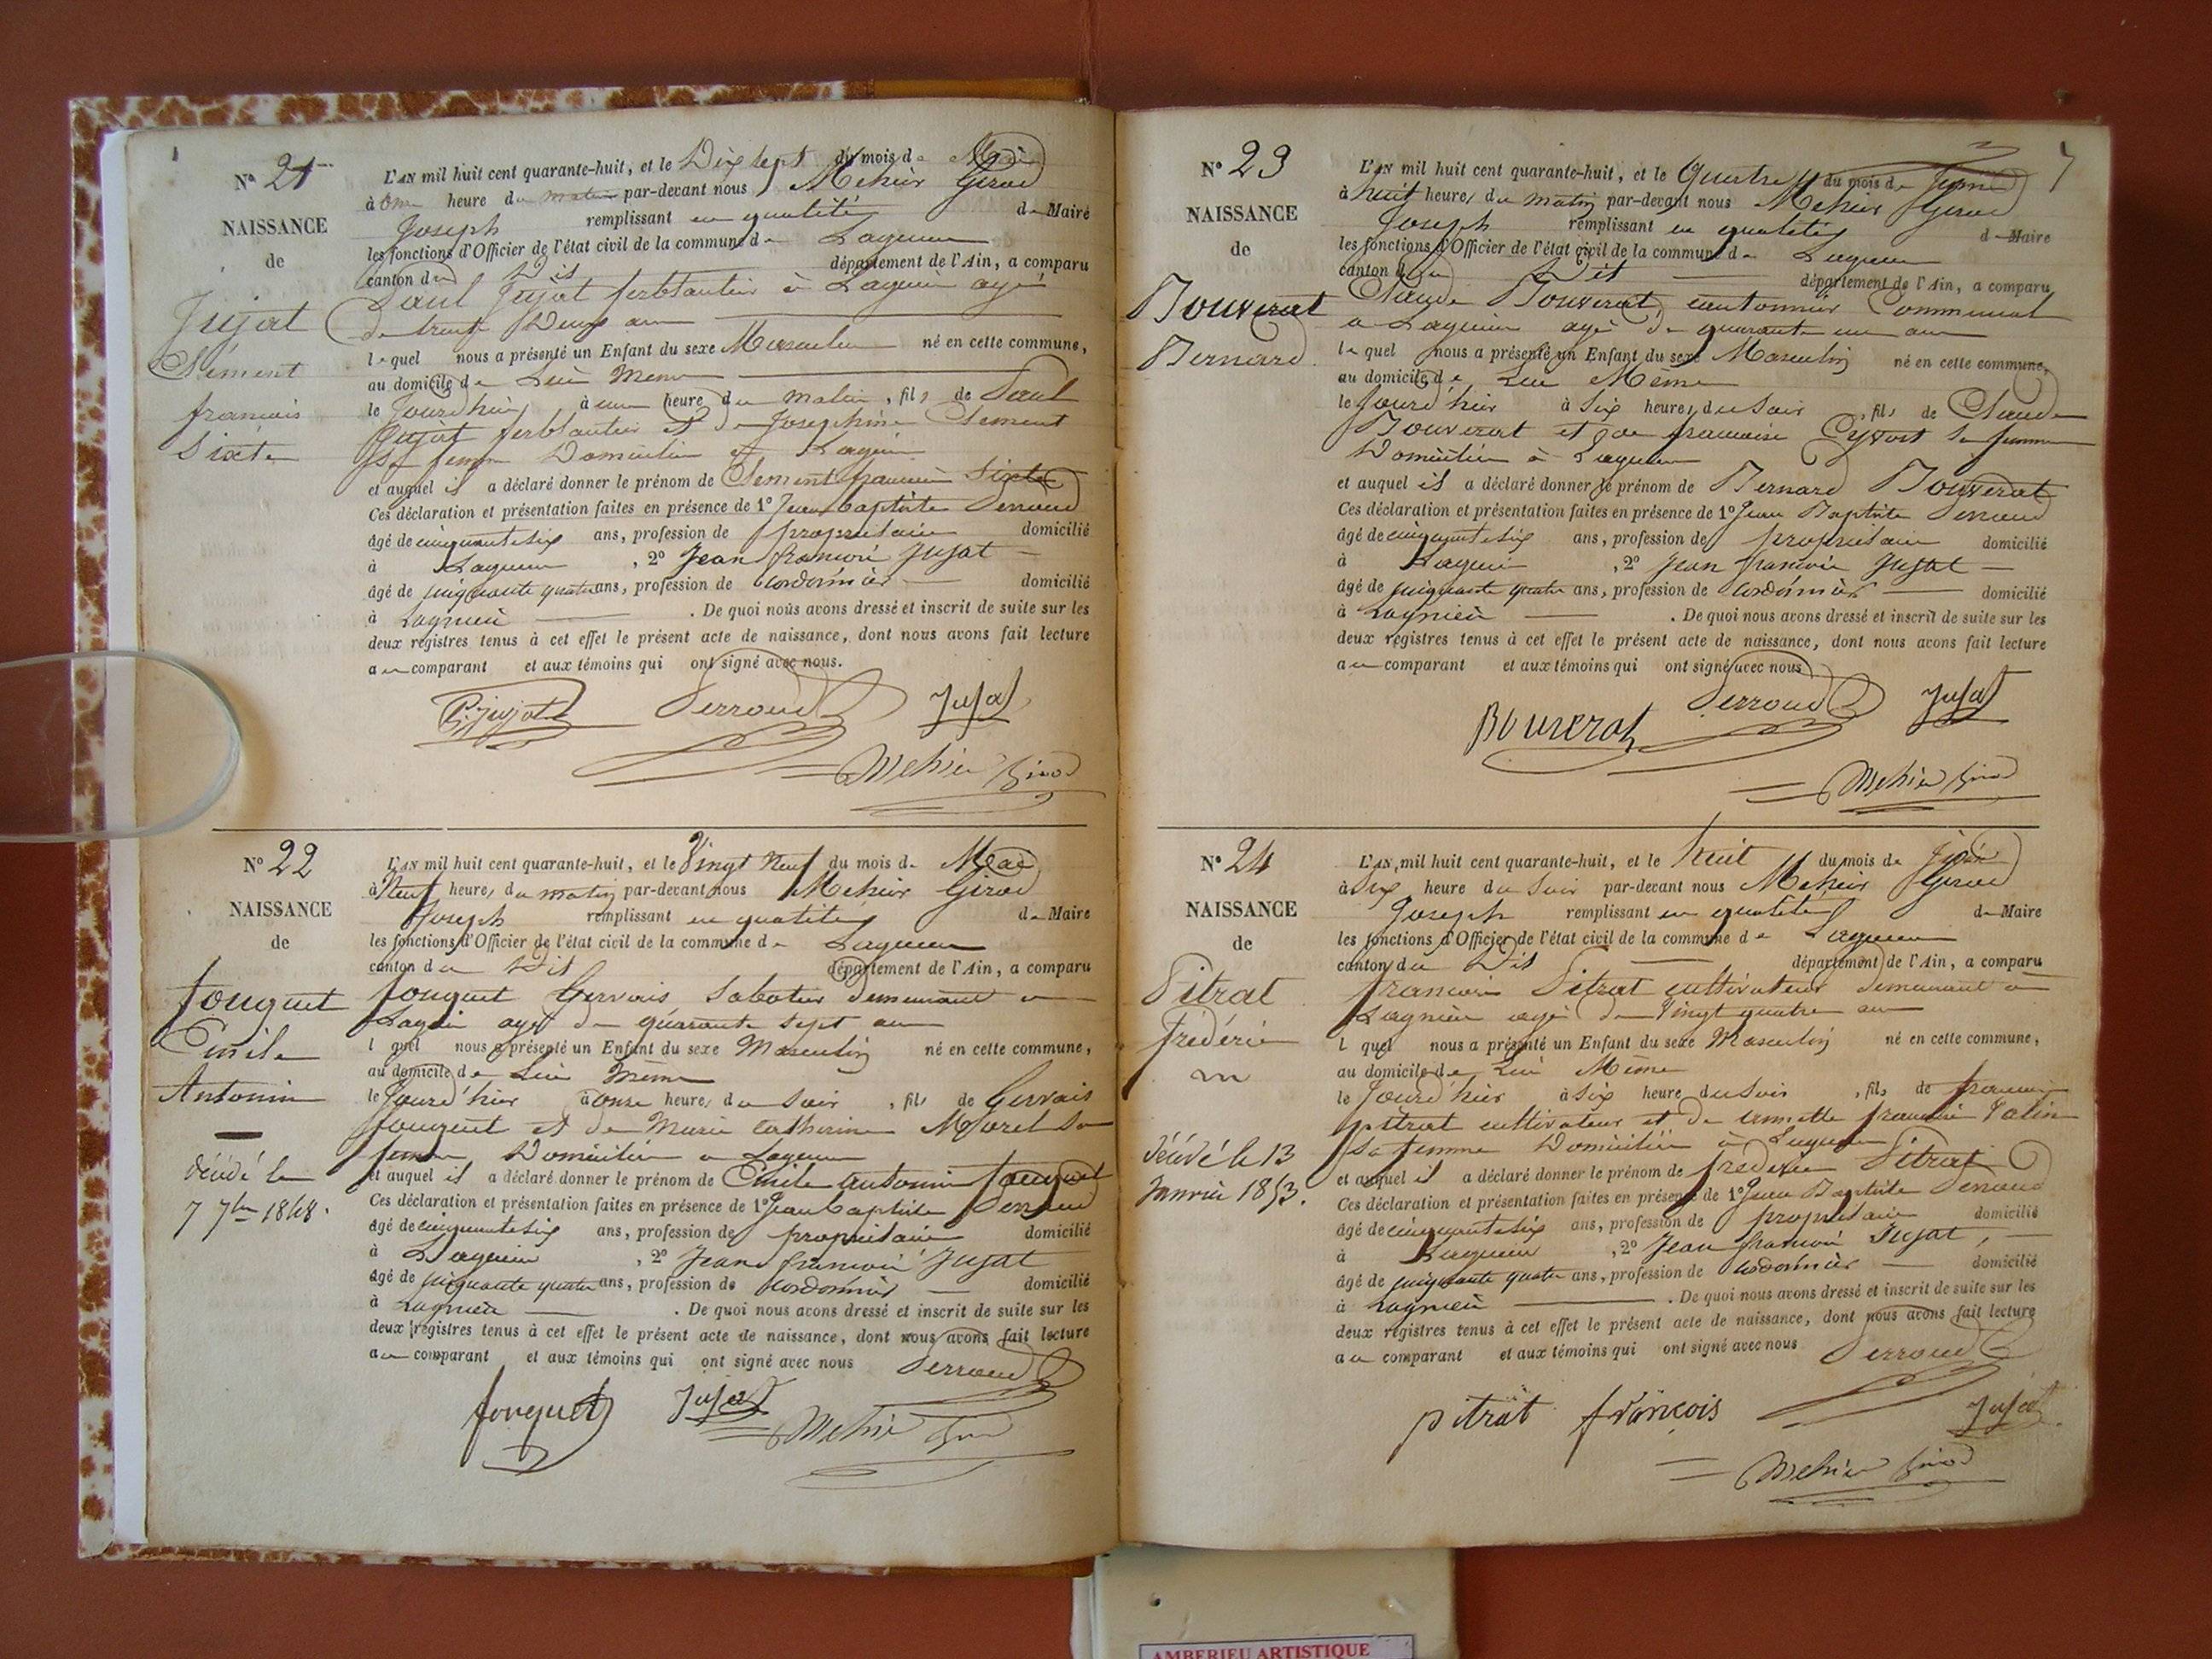 N° 21
NAISSANCE
de
Jujat
Clément
françois
Sixte
L'AN mil huit cent quarante-huit, et le Dix sept du mois de Mai
à onze heure du matin par-devant nous Mehier Girod
Joseph remplissant en qualité de Maire
les fonctions d'Officier de l'état civil de la commune de Lagnieu
canton du Dit département de l'Ain, a comparu
Paul Jujat ferblantier à Lagnieu agé
de trente Deux ans
lequel nous a présenté un Enfant du sexe Masculin né en cette commune,
au domicile de Lui même
le Jourd'hui à une heure du matin, fils de Paul
Jujat ferblantier et de Josephine Clement
sa femme Domicilié à Lagnieu
et auquel il a déclaré donner le prénom de Clement françois Sixte
Ces déclaration et présentation faites en présence de 1° Jean Baptiste Perroud
âgé de cinquante six ans, profession de propriétaire domicilié
à Lagnieu, 2° Jean françois Jujat
âgé de cinquante quatre ans, profession de cordonnier domicilié
à Lagnieu. De quoi nous avons dressé et inscrit de suite sur les
deux registres tenus à cet effet le présent acte de naissance, dont nous avons fait lecture
au comparant et aux témoins qui ont signé avec nous.
P. Jujat Perroud Jujat
Mehier Girod
N° 22
NAISSANCE
de
fouquet
Emile
Antonin
décédé le
7 7bre 1848.
L'AN mil huit cent quarante-huit, et le Vingt Neuf du mois de Mai
à Neuf heures du matin par-devant nous Mehier Girod
Joseph remplissant en qualité de Maire
les fonctions d'Officier de l'état civil de la commune de Lagnieu
canton du Dit département de l'Ain, a comparu
fouquet Gervais Saboteur Demeurant a
Lagnieu agé de quarante sept ans
l quel nous a présenté un Enfant du sexe Masculin né en cette commune,
au domicile de Lui même
le Jourd'hier à onze heures du Soir, fils de Gervais
fouquet et de Marie Catherine Morel Sa
femme Domicilié a Lagnieu
et auquel il a déclaré donner le prénom de Emile antonin fouquet
Ces déclaration et présentation faites en présence de 1° Jean Baptiste Perroud
âgé de cinquante six ans, profession de propriétaire domicilié
à Lagnieu, 2° Jean françois Jujat
âgé de cinquante quatre ans, profession de cordonnier domicilié
à Lagnieu. De quoi nous avons dressé et inscrit de suite sur les
deux registres tenus à cet effet le présent acte de naissance, dont nous avons fait lecture
au comparant et aux témoins qui ont signé avec nous Perroud
fouquet Jujat
Mehier Girod
7
N° 23
NAISSANCE
de
Bouverat
Bernard
L'AN mil huit cent quarante-huit, et le Quatre du mois de Juin
à huit heures du matin par-devant nous Mehier Girod
Joseph remplissant en qualité de Maire
les fonctions d'Officier de l'état civil de la commune de Lagnieu
canton du Dit département de l'Ain, a comparu
Claude Bouverat cantonnier Communal
a Lagnieu agé de quarante un ans
lequel nous a présenté un Enfant du sexe Masculin né en cette commune,
au domicile de Lui Même
le Jourd'hier à Six heures du Soir, fils de Claude
Bouverat et de francoise Sa femme
Domicilié à Lagnieu
et auquel il a déclaré donner le prénom de Bernard Bouverat
Ces déclaration et présentation faites en présence de 1° Jean Baptiste Perroud
âgé de cinquante six ans, profession de propriétaire domicilié
à Lagnieu, 2° Jean françois Jujat
âgé de cinquante quatre ans, profession de cordonnier domicilié
à Lagnieu. De quoi nous avons dressé et inscrit de suite sur les
deux registres tenus à cet effet le présent acte de naissance, dont nous avons fait lecture
au comparant et aux témoins qui ont signé avec nous
Bouverat Perroud Jujat
Mehier Girod
N° 24
NAISSANCE
de
Pitrat
frédéric
décédé le 13
Janvier 1853.
L'AN mil huit cent quarante-huit, et le huit du mois de Juin
à Six heure du Soir par-devant nous Mehier Girod
Joseph remplissant en qualité de Maire
les fonctions d'Officier de l'état civil de la commune de Lagnieu
canton du Dit département de l'Ain, a comparu
francois Pitrat cultivateur demeurant à
Lagnieu agé de Vingt quatre ans
l quel nous a présenté un Enfant du sexe Masculin né en cette commune,
au domicile de Lui Même
le Jourd'hier à Six heure du Soir, fils de francois
pitrat cultivateur et de
sa femme Domicilié à Lagnieu
et auquel il a déclaré donner le prénom de frederic Pitrat
Ces déclaration et présentation faites en présence de 1° Jean Baptiste Perroud
âgé de cinquante six ans, profession de propriétaire domicilié
à Lagnieu, 2° Jean francois Jujat,
âgé de cinquante quatre ans, profession de cordonnier domicilié
à Lagnieu. De quoi nous avons dressé et inscrit de suite sur les
deux registres tenus à cet effet le présent acte de naissance, dont nous avons fait lecture
au comparant et aux témoins qui ont signé avec nous Perroud
pitrat françois Jujat
Mehier Girod
AMBERIEU ARTISTIQUE